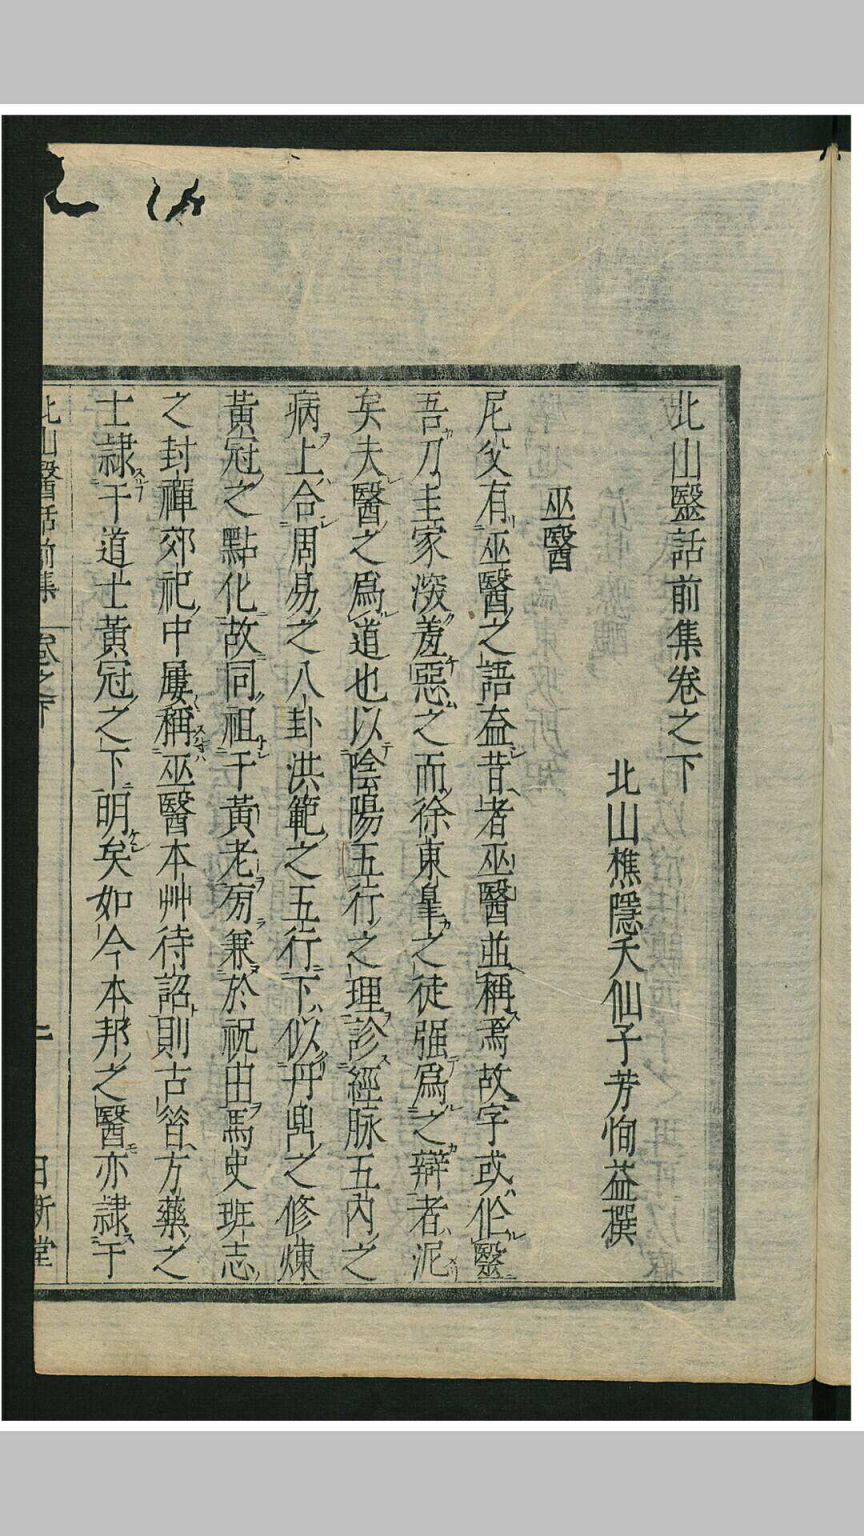 北山毉話前集卷之下
北山樵隱天仙子芳恂益撰
巫醫
尼父有巫醫之語益昔者巫醫並稱焉故字或作毉
吾刀圭家深羞惡之而徐東皐之徒强爲之辯者泥
矣夫醫之爲道也以陰陽五行之理診經脉五內之
病上合周易之八卦洪範之五行下似丹鼎之修煉
黃冠之點化故同祖于黃老旁兼於祝由馬史班志
之封禪郊祀中屢稱巫醫本艸待詔則古昔方藥之
士隷于道士黃冠之下明矣如今本邦之醫亦隷于
北山醫話前集 卷之下 一 日新堂